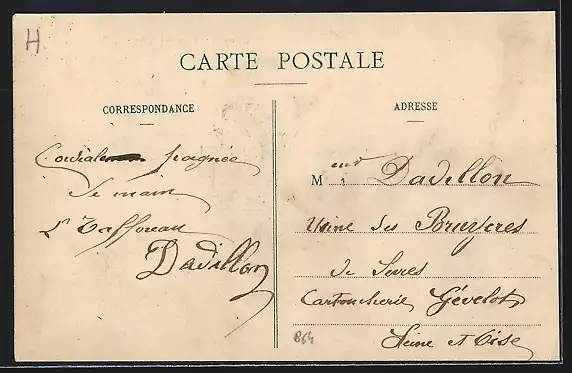 H
CARTE POSTALE
CORRESPONDANCE
ADRESSE
Cordiale poignée
de main
Dadillon
M eur Dadillon
Usine des Bruyères
de Sevres
Cartoucherie Gévelot
Seine et Oise
B64